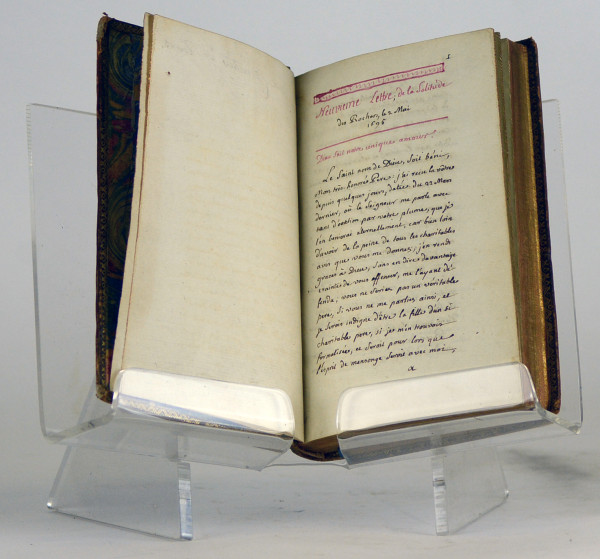 1
Neuvieme Lettre, de la Solitude
des Rochers, le 2 Mai
1696
Dieu soit notre unique amour!
Le Saint nom de Dieu, soit béni,
Mon très honoré Pere; j'ai recu la vôtre
depuis quelques jours, datée du 22 Mars
dernier, où le Seigneur me parle avec
tant d'onction par votre plume, que je
l'en benirai éternellement, car bien loin
d'avoir de la peine de tous les charitables
avis que vous me donnez, j'en rends
graces à Dieu, sans en dire davantage
crainte de vous offenser, me l'ayant dé-
fendu; vous ne seriez pas un veritable
pere, si vous ne me parliez ainsi, et
je serois indigne d'être la fille d'un si
charitable pere, si je m'en trouvois
formalisée, ce seroit pour lors que
l'esprit de mensonge seroit avec moi,